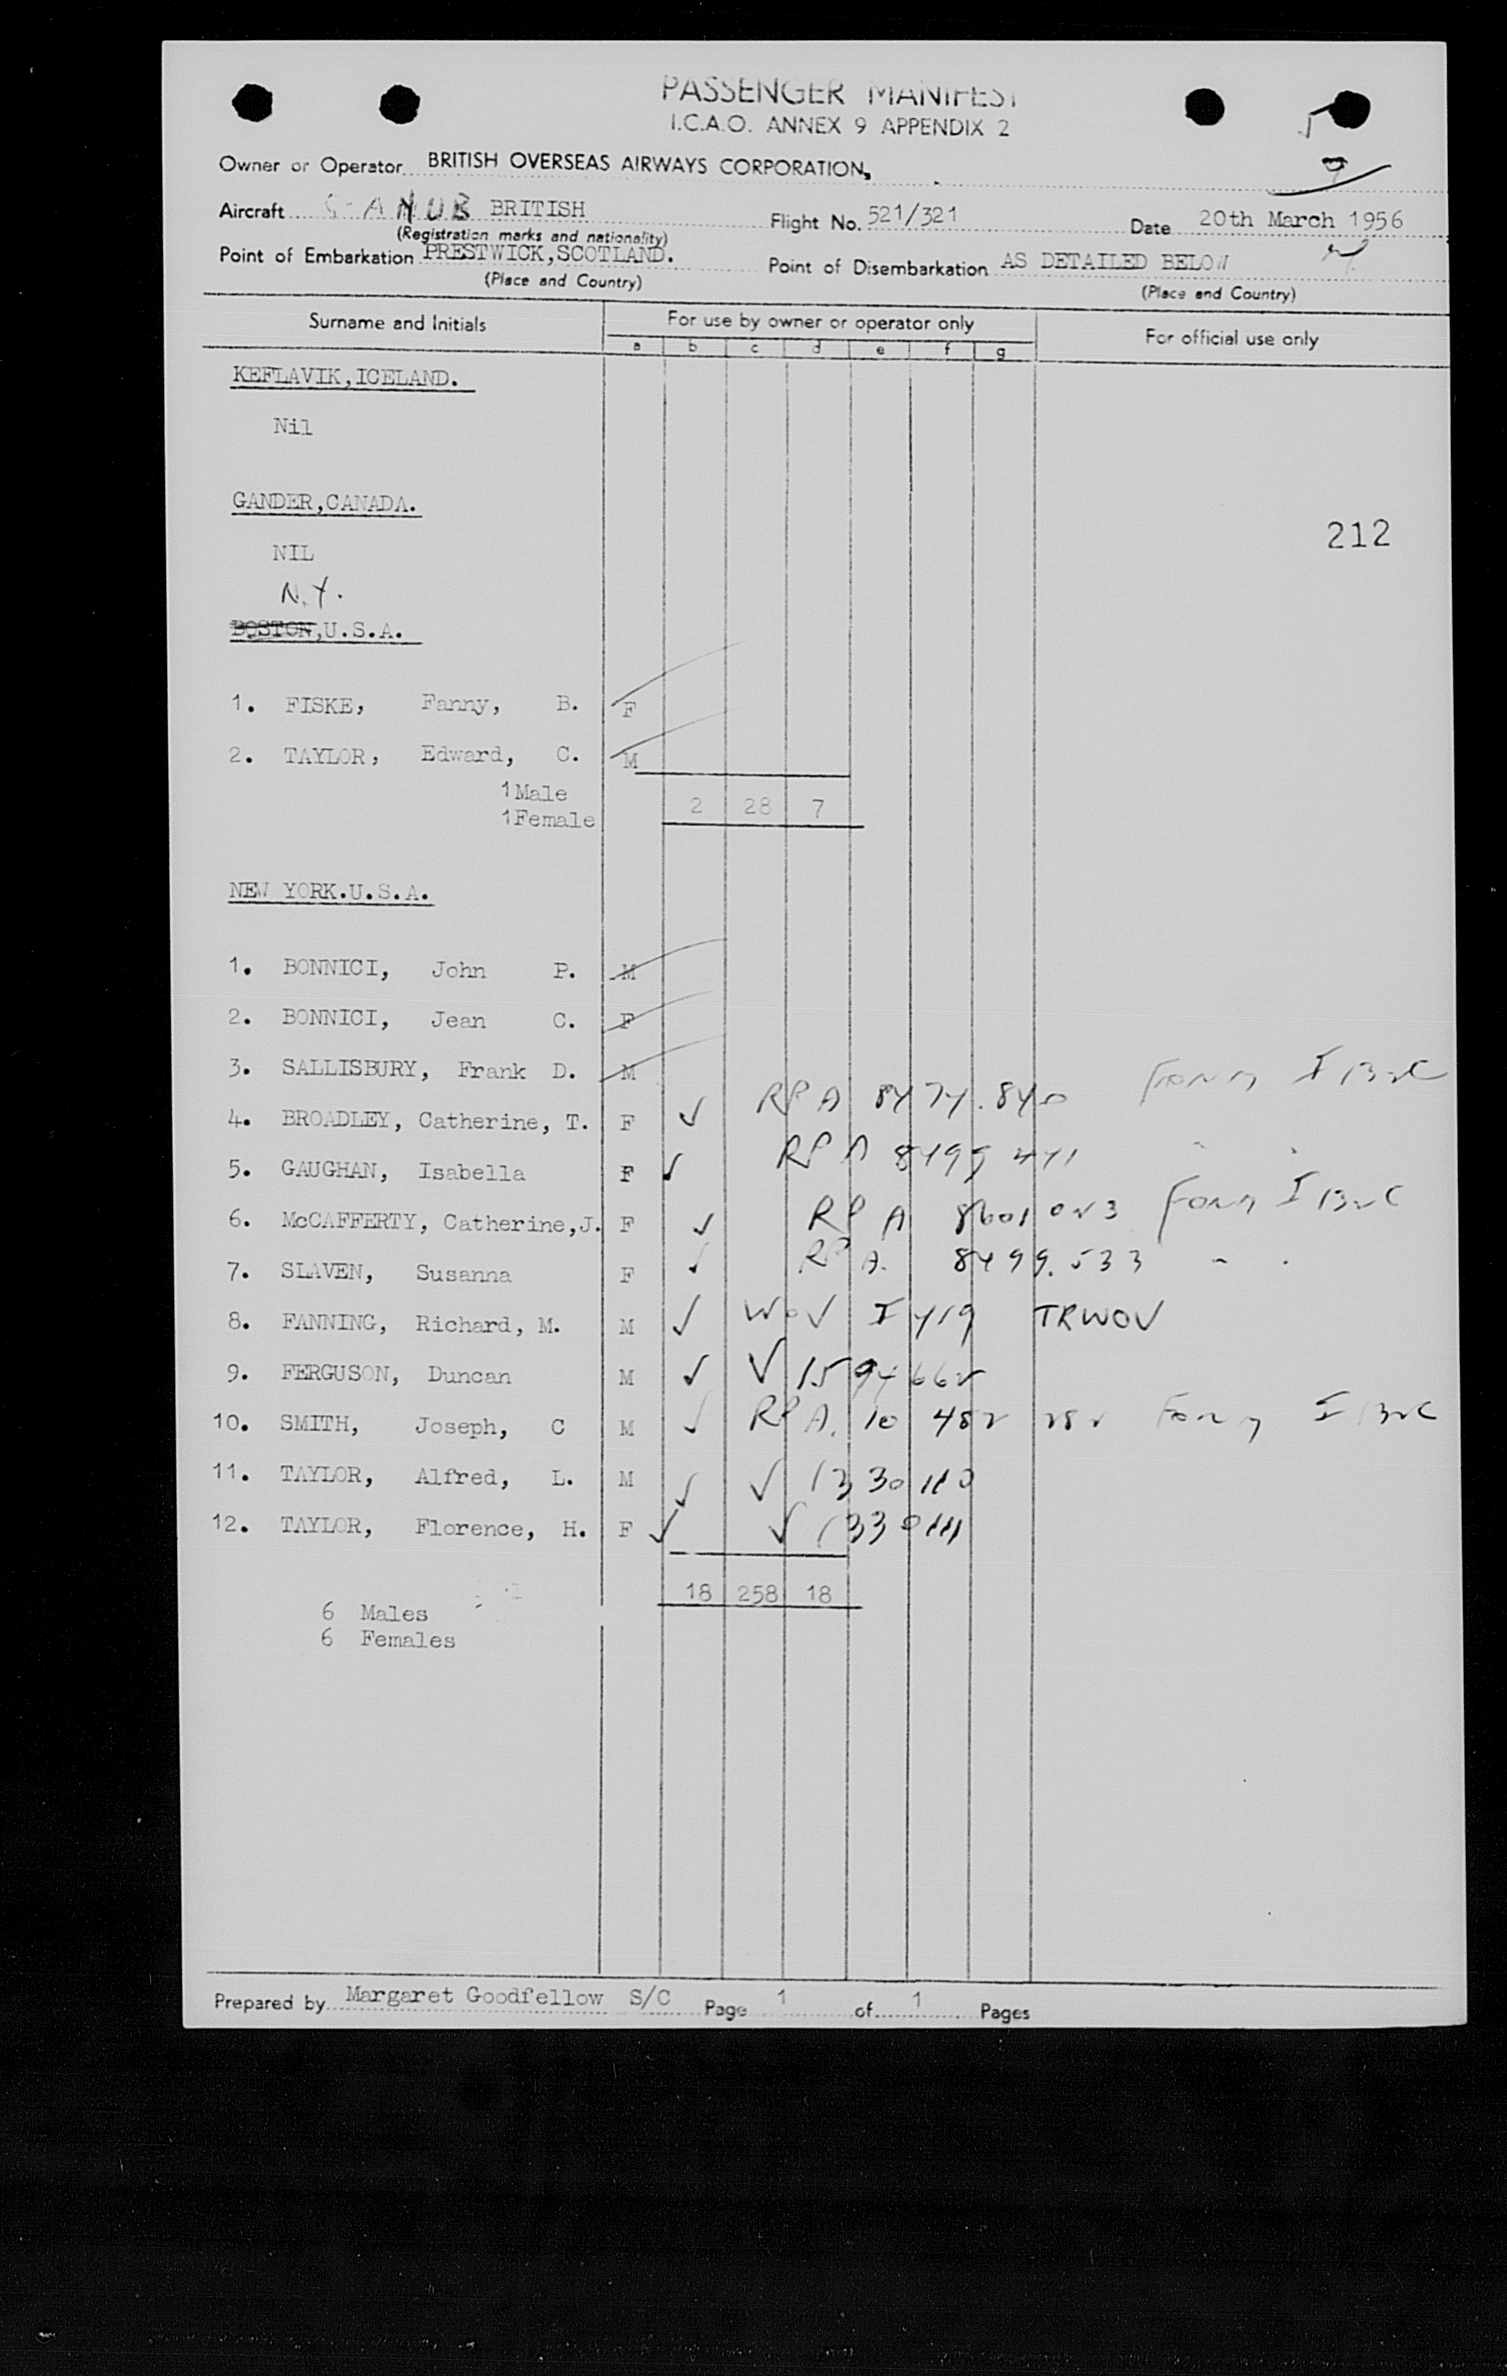 PASSENGER MANIFEST
I.C.A.O. ANNEX 9 APPENDIX 2
Owner or Operator BRITISH OVERSEAS AIRWAYS CORPORATION,
9
Aircraft G-ANUB BRITISH Flight No. 521/321 Date 20th March 1956
(Registration marks and nationality)
Point of Embarkation PRESTWICK,SCOTLAND. Point of Disembarkation AS DETAILED BELOW
(Place and Country) (Place and Country)
Surname and Initials For use by owner or operator only For official use only
a b c d e f g
KEFLAVIK,ICELAND.
Nil
GANDER,CANADA.
212
NIL
N.Y.
BOSTON,U.S.A.
1. FISKE, Fanny, B. F
2. TAYLOR, Edward, C. M
1Male
1Female
2 28 7
NEW YORK.U.S.A.
1. BONNICI, John P. M
2. BONNICI, Jean C. F
3. SALLISBURY, Frank D. M
4. BROADLEY, Catherine, T. F ✓ RP A 8474.840 Form I
5. GAUGHAN, Isabella F ✓ RP A 8499 441 " "
6. McCAFFERTY, Catherine,J. F ✓ RP A 8601023 Form I
7. SLAVEN, Susanna F ✓ RP A. 8499.533 " "
8. FANNING, Richard, M. M ✓ WOV I 419 TRWOV
9. FERGUSON, Duncan M ✓ V 1594662
10. SMITH, Joseph, C M ✓ RP A. 10 482 282 Form I
11. TAYLOR, Alfred, L. M ✓ V 1330110
12. TAYLOR, Florence, H. F ✓ V 1330111
18 258 18
6 Males
6 Females
Prepared by Margaret Goodfellow S/C Page 1 of 1 Pages